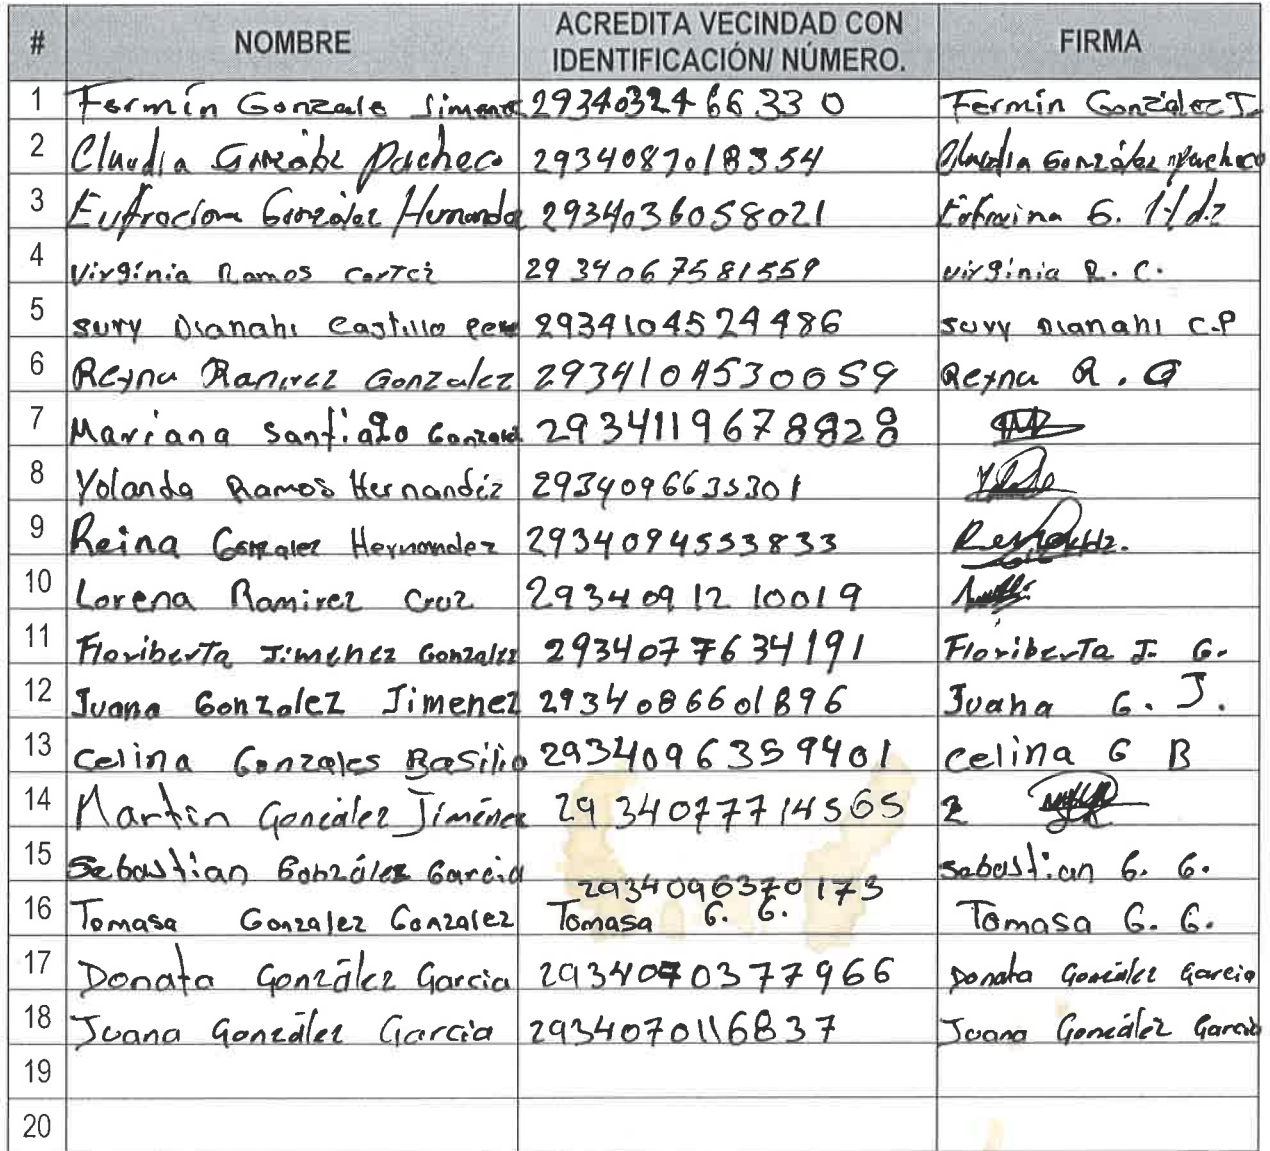 # NOMBRE ACREDITA VECINDAD CON IDENTIFICACIÓN/ NÚMERO. FIRMA
1 Fermín Gonzale Jimene 2934032466330 Fermín González J.
2 Claudia González Pacheco 2934087018354 Claudia González Pacheco
3 González Hernande 2934036058021 G. Hdz
4 Virginia Ramos Cortez 2934067581559 Virginia R. C.
5 Suvy Dianahi Castillo 2934104524486 Suvy Dianahi C.P
6 Reyna Ramirez Gonzalez 2934104530059 Reyna R. G
7 Mariana Santiago Gonzalez 2934119678828
8 Yolanda Ramos Hernandez 2934096635301
9 Reina Gonzalez Hernandez 2934094553833
10 Lorena Ramirez Cruz 2934091210019
11 Floriberta Jimenez Gonzalez 2934077634191 Floriberta J. G.
12 Juana Gonzalez Jimenez 2934086601896 Juana G. J.
13 Celina Gonzales Basilio 2934096359401 Celina G B
14 Martín González Jiménez 2934077714565
15 Sebastian González Garcia 2934096370173 Sebastian G. G.
16 Tomasa Gonzalez Gonzalez Tomasa G. G. Tomasa G. G.
17 Donata González Garcia 2934070377966 Donata González Garcia
18 Juana González Garcia 2934070116837 Juana González Garcia
19
20